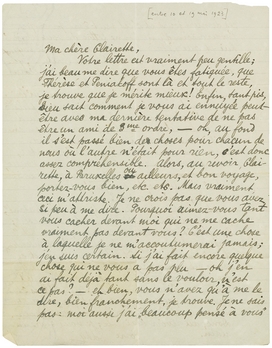 [entre 10 et 19 mai 1923]
Ma chère Clairette,
Votre lettre est vraiment peu gentille;
j'ai beau me dire que vous êtes fatiguée, que
Thérèse et Peniakoff sont là et tout le reste,
je trouve que je mérite mieux! Enfin, tant pis,
Dieu sait comment je vous ai ennuyée peut-
être avec ma dernière tentative de ne pas
être un ami de 3me ordre, — oh, au fond
il s'est passé bien des choses pour chacun de
nous où l'autre n'était pour rien, c'est donc
assez compréhensible. Alors, au revoir Clai-
rette, à Bruxelles ou ailleurs, et bon voyage,
portez-vous bien, etc. etc. Mais vraiment
ceci m'attriste. Je ne crois pas que vous avez
si peu à me dire. Pourquoi aimez-vous tant
vous cacher devant moi qui ne me cache
vraiment pas devant vous? C'est une chose
à laquelle je ne m'accoutumerai jamais;
j'en suis certain. Si j'ai fait encore quelque
chose qui ne vous a pas peu — oh j'en
au fait déjà tant sans le vouloir, n'est-
ce pas! — et bien, vous n'avez qu'à me le
dire, bien franchement, je trouve, je ne sais
pas — moi aussi j'ai beaucoup pensé à vous